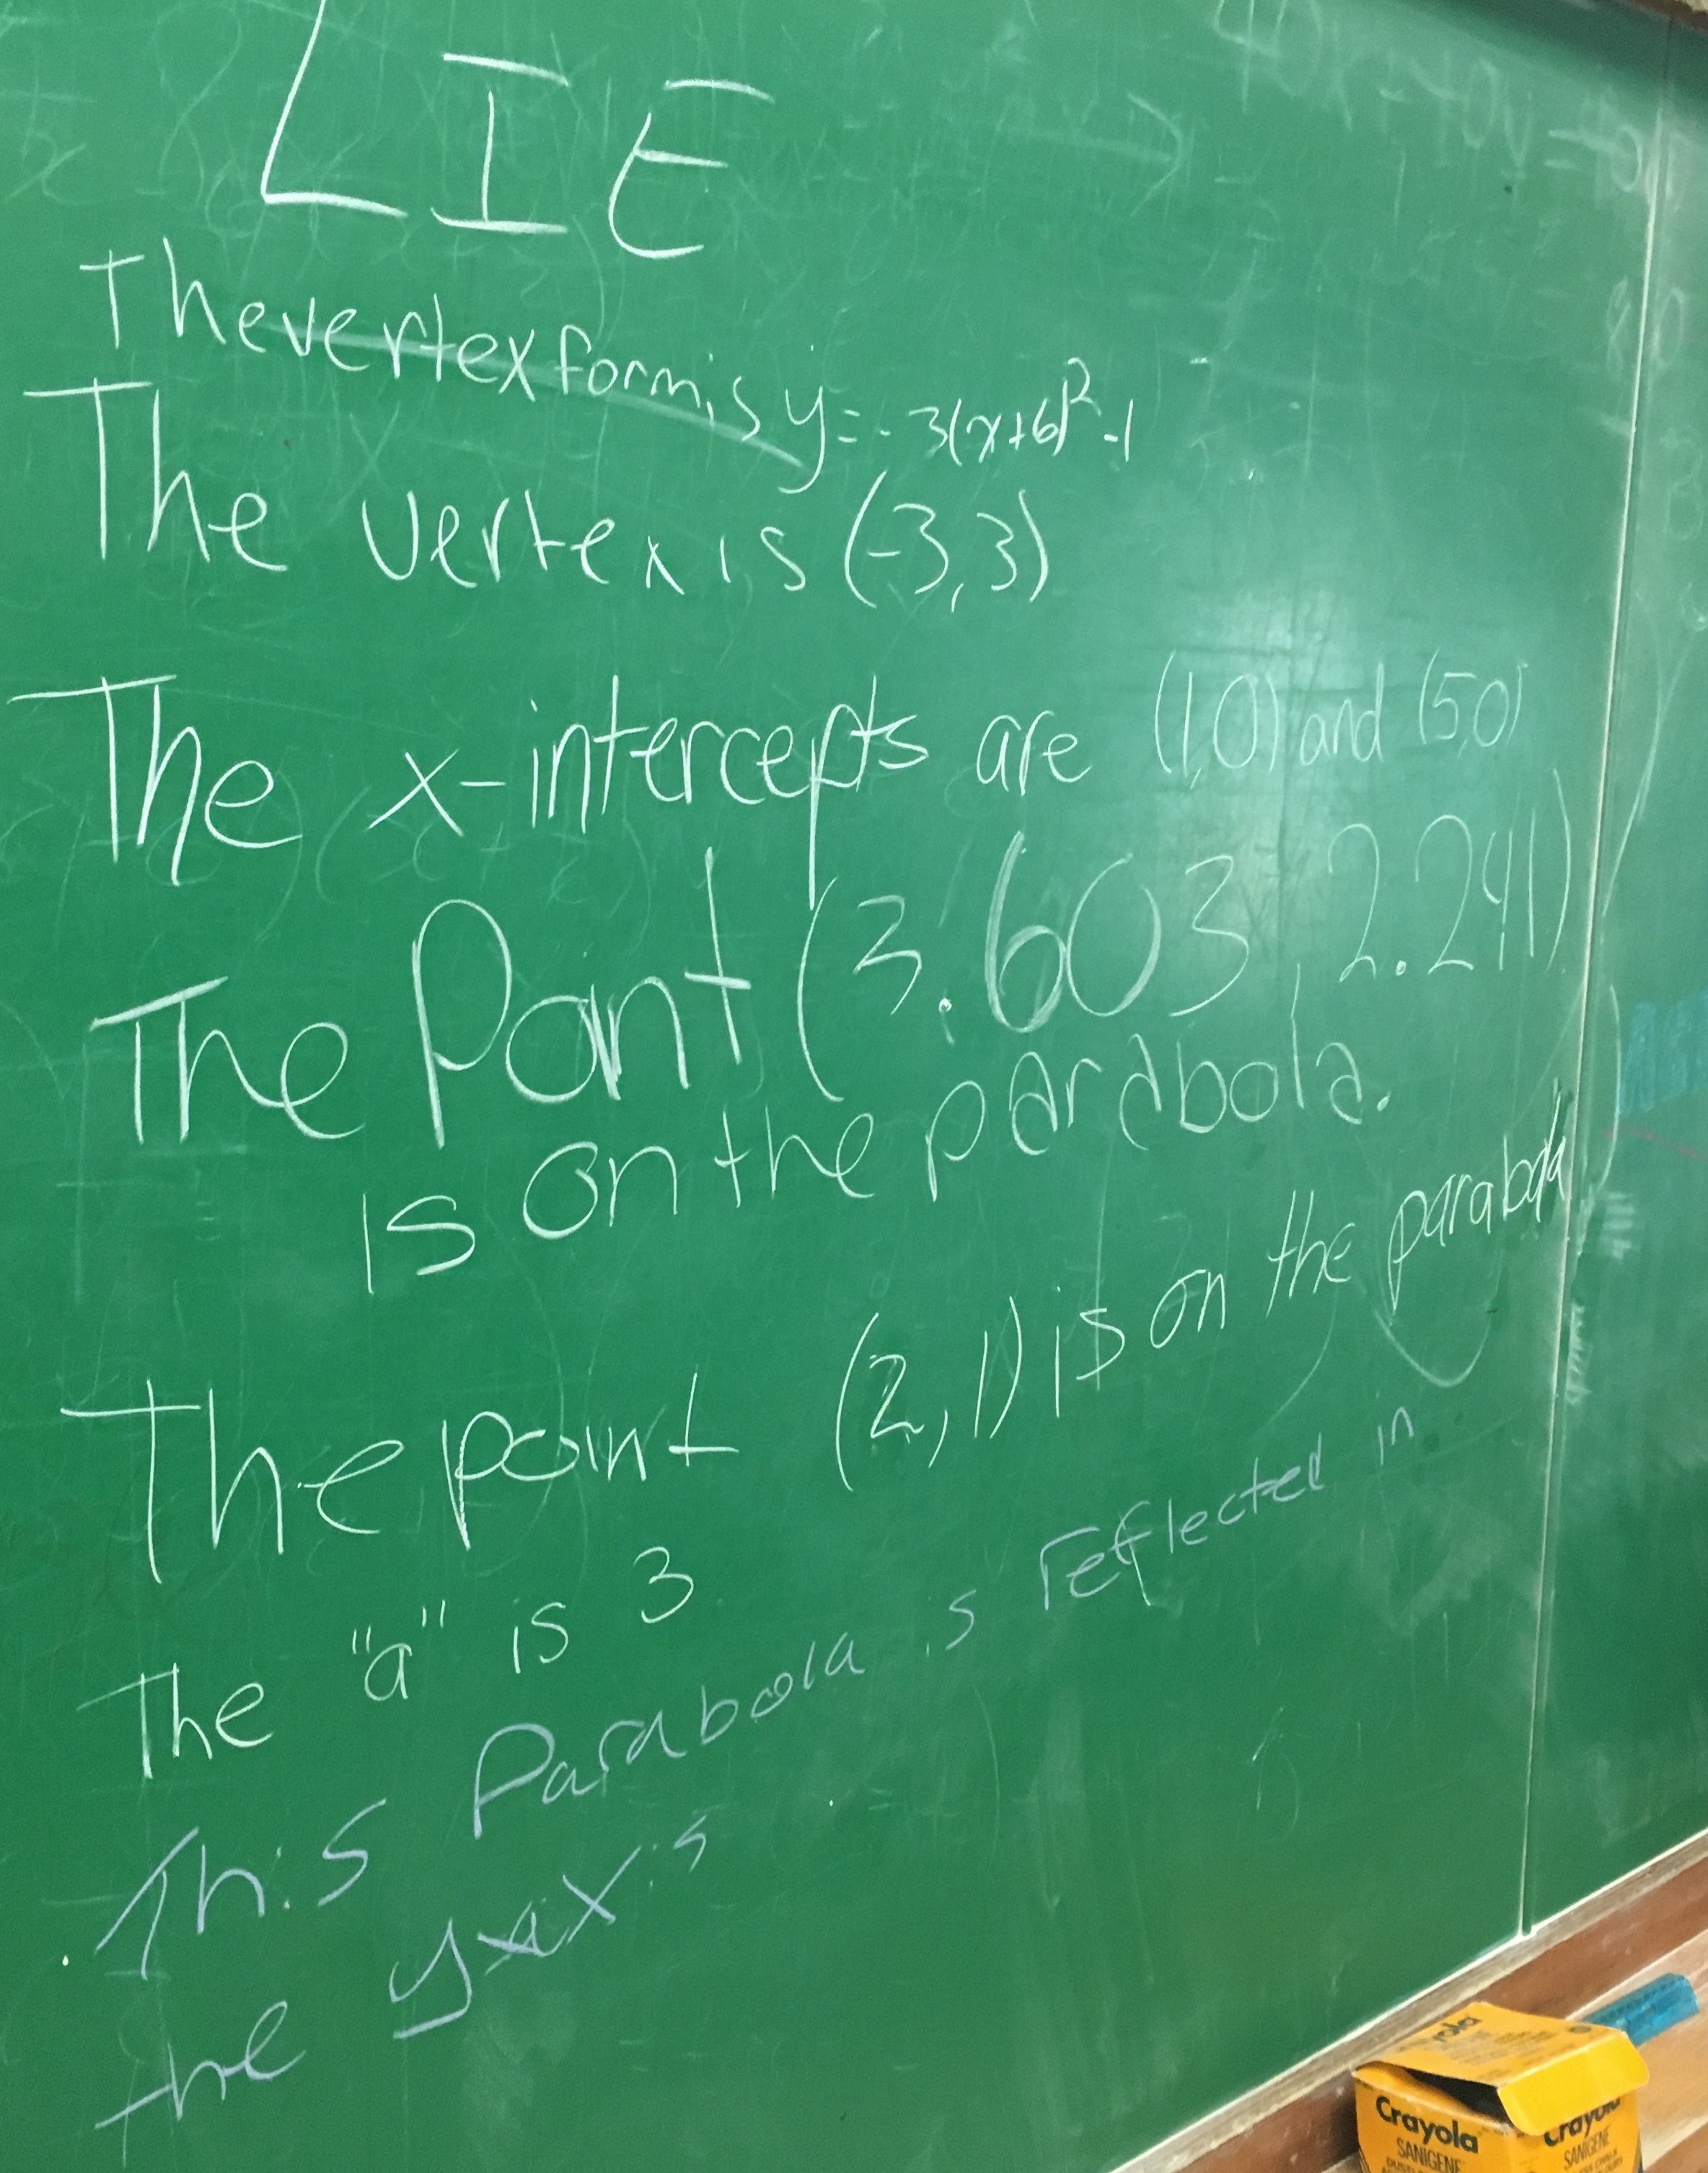 LIE
The vertex form is y=-3(x+6)²-1
The vertex is (-3,3)
The x-intercepts are (1,0) and (5,0)
The Point (3.603, 2.291)
is on the parabola.
The point (2,1) is on the parabola
The "a" is 3
This Parabola is reflected in
the y-axis
Crayola
SANIGENE
Crayola
SANIGENE